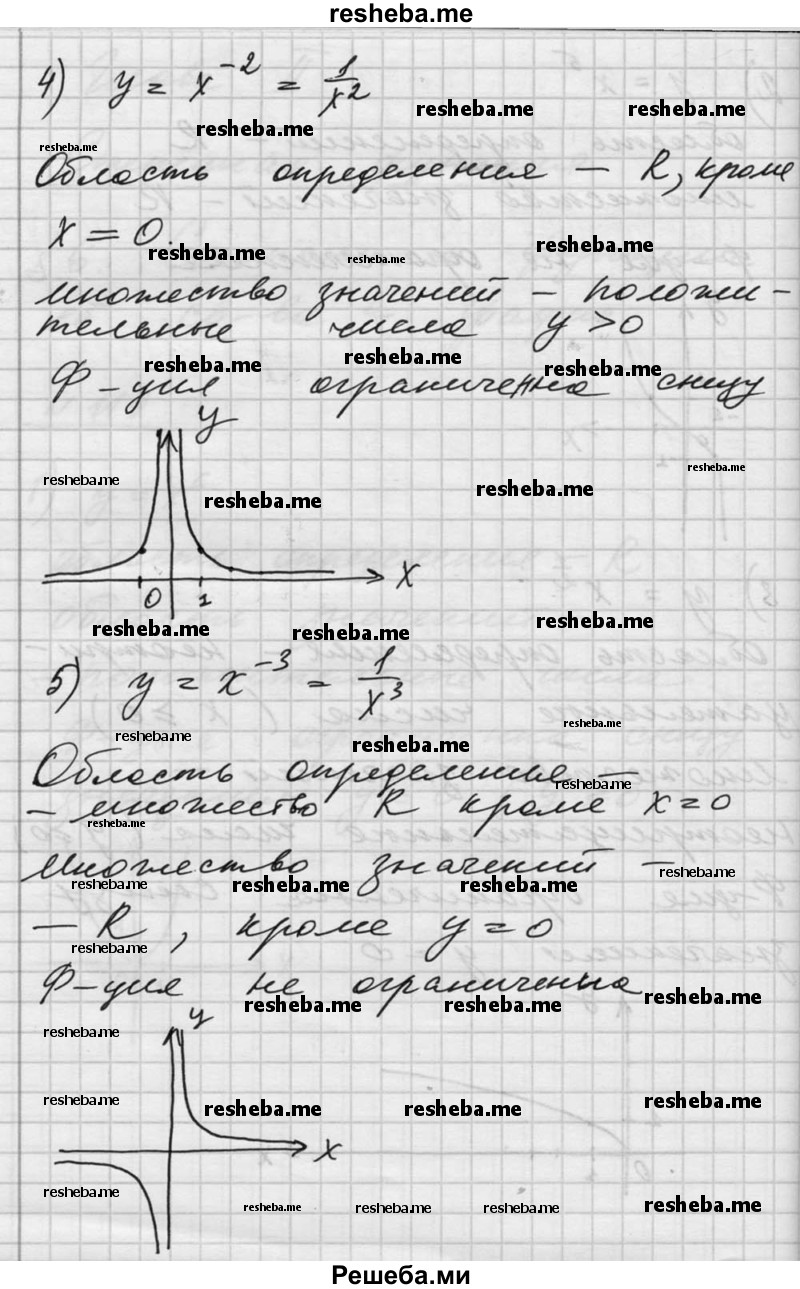 resheba.me
4) y = x⁻² = 1/x²
resheba.me resheba.me
resheba.me
resheba.me
Область определения — R, кроме
x = 0.
resheba.me resheba.me resheba.me
множество значений – положи-
тельные числа y > 0
resheba.me resheba.me resheba.me
Ф-ция ограниченна снизу
y
resheba.me
resheba.me
resheba.me resheba.me
x
0 1
resheba.me resheba.me resheba.me
5) y = x⁻³ = 1/x³
resheba.me
resheba.me resheba.me
Область определенья —
resheba.me
– множество R кроме x = 0
resheba.me
Множество значений –
resheba.me resheba.me resheba.me resheba.me
— R, кроме y = 0
resheba.me
Ф-ция не ограниченна
resheba.me resheba.me resheba.me
y
resheba.me
resheba.me resheba.me resheba.me resheba.me
x
resheba.me resheba.me resheba.me resheba.me resheba.me
Решеба.ми